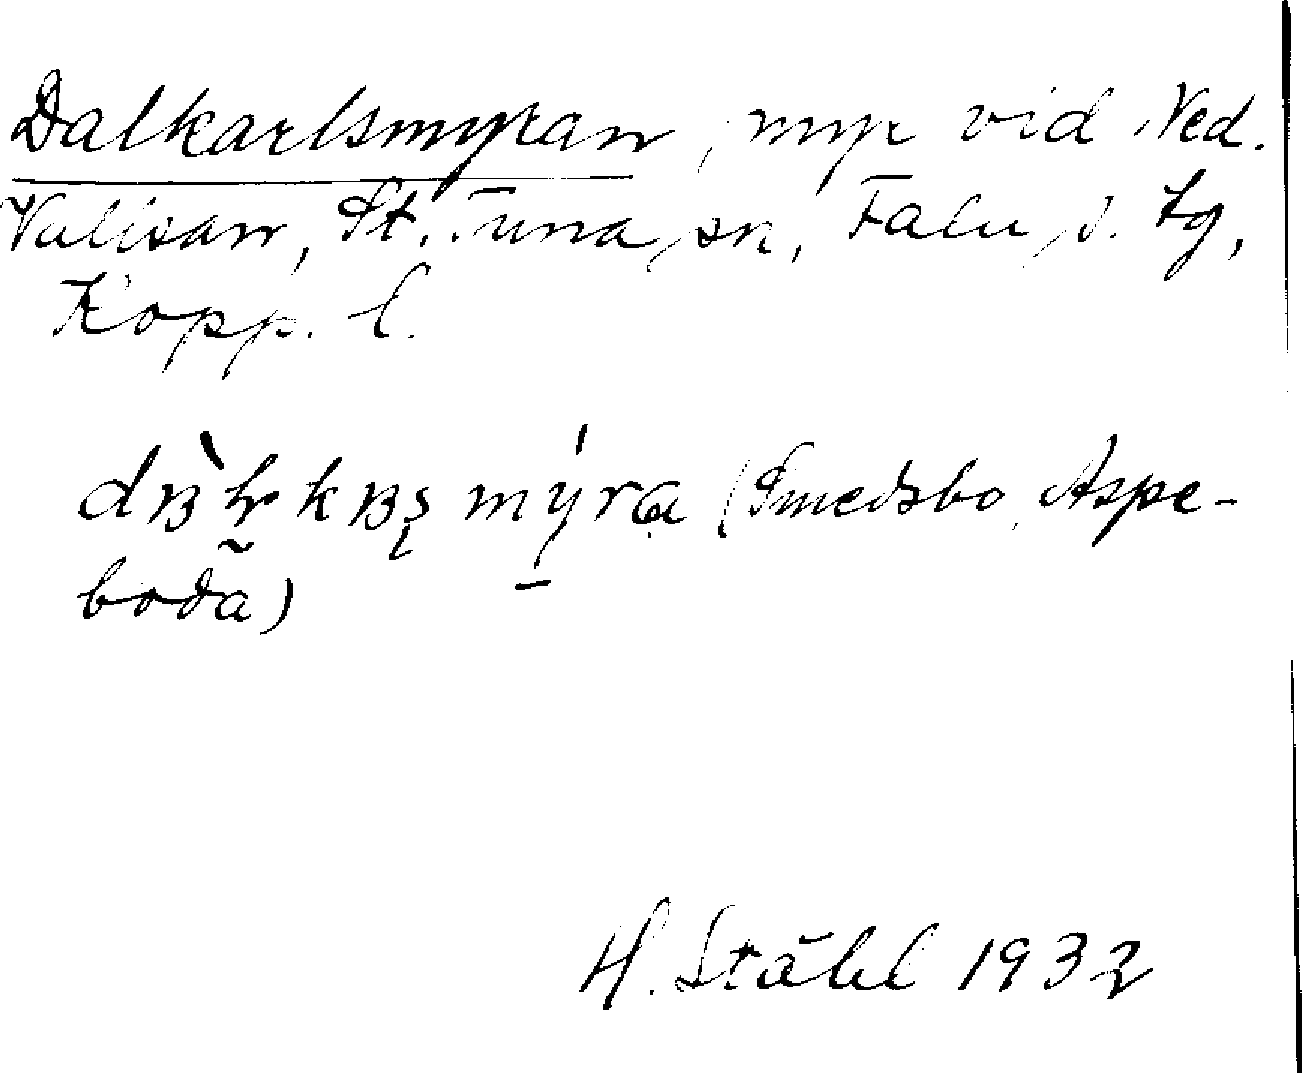 Dalkarlsmyran, myr vid Ned.
Vallsan, St. Tuna sn, Falu s. tg,
Kopp. l.
mýra (Smedsbo, Aspe-
boda)
H. Ståhl 1932